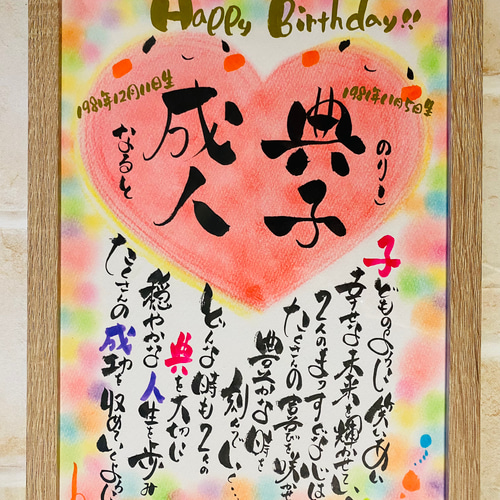 Happy Birthday!!
1981年11月5日生
典子
のりこ
1981年12月11日生
成人
なると
子どものように笑いあい
幸せな未来を輝かせてい
2人のまっすぐな心は
たくさんの喜びを咲かせ
豊かな時を
刻んでいく…
どんな時も2人の
典を大切に
穏やかな人生を歩み
たくさんの成功を収めていくように